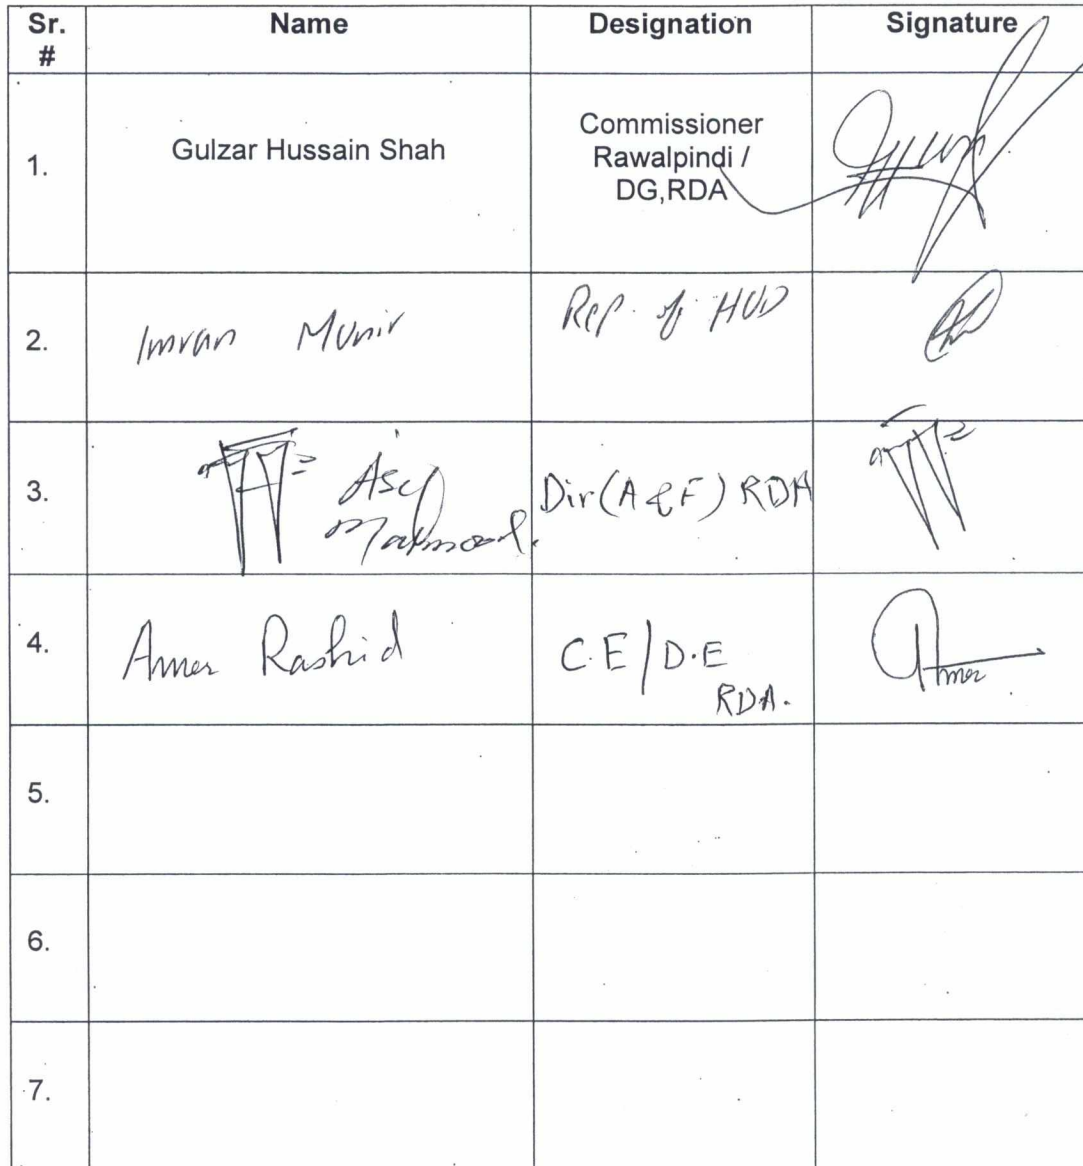 Sr. # Name Designation Signature
1. Gulzar Hussain Shah Commissioner
Rawalpindi /
DG,RDA
2. Imran Munir Rep. of HUD
3. Asif Dir(A & F) RDA
Mahmood.
4. Amer Rashid C.E/D.E
RDA. Amer
5.
6.
7.